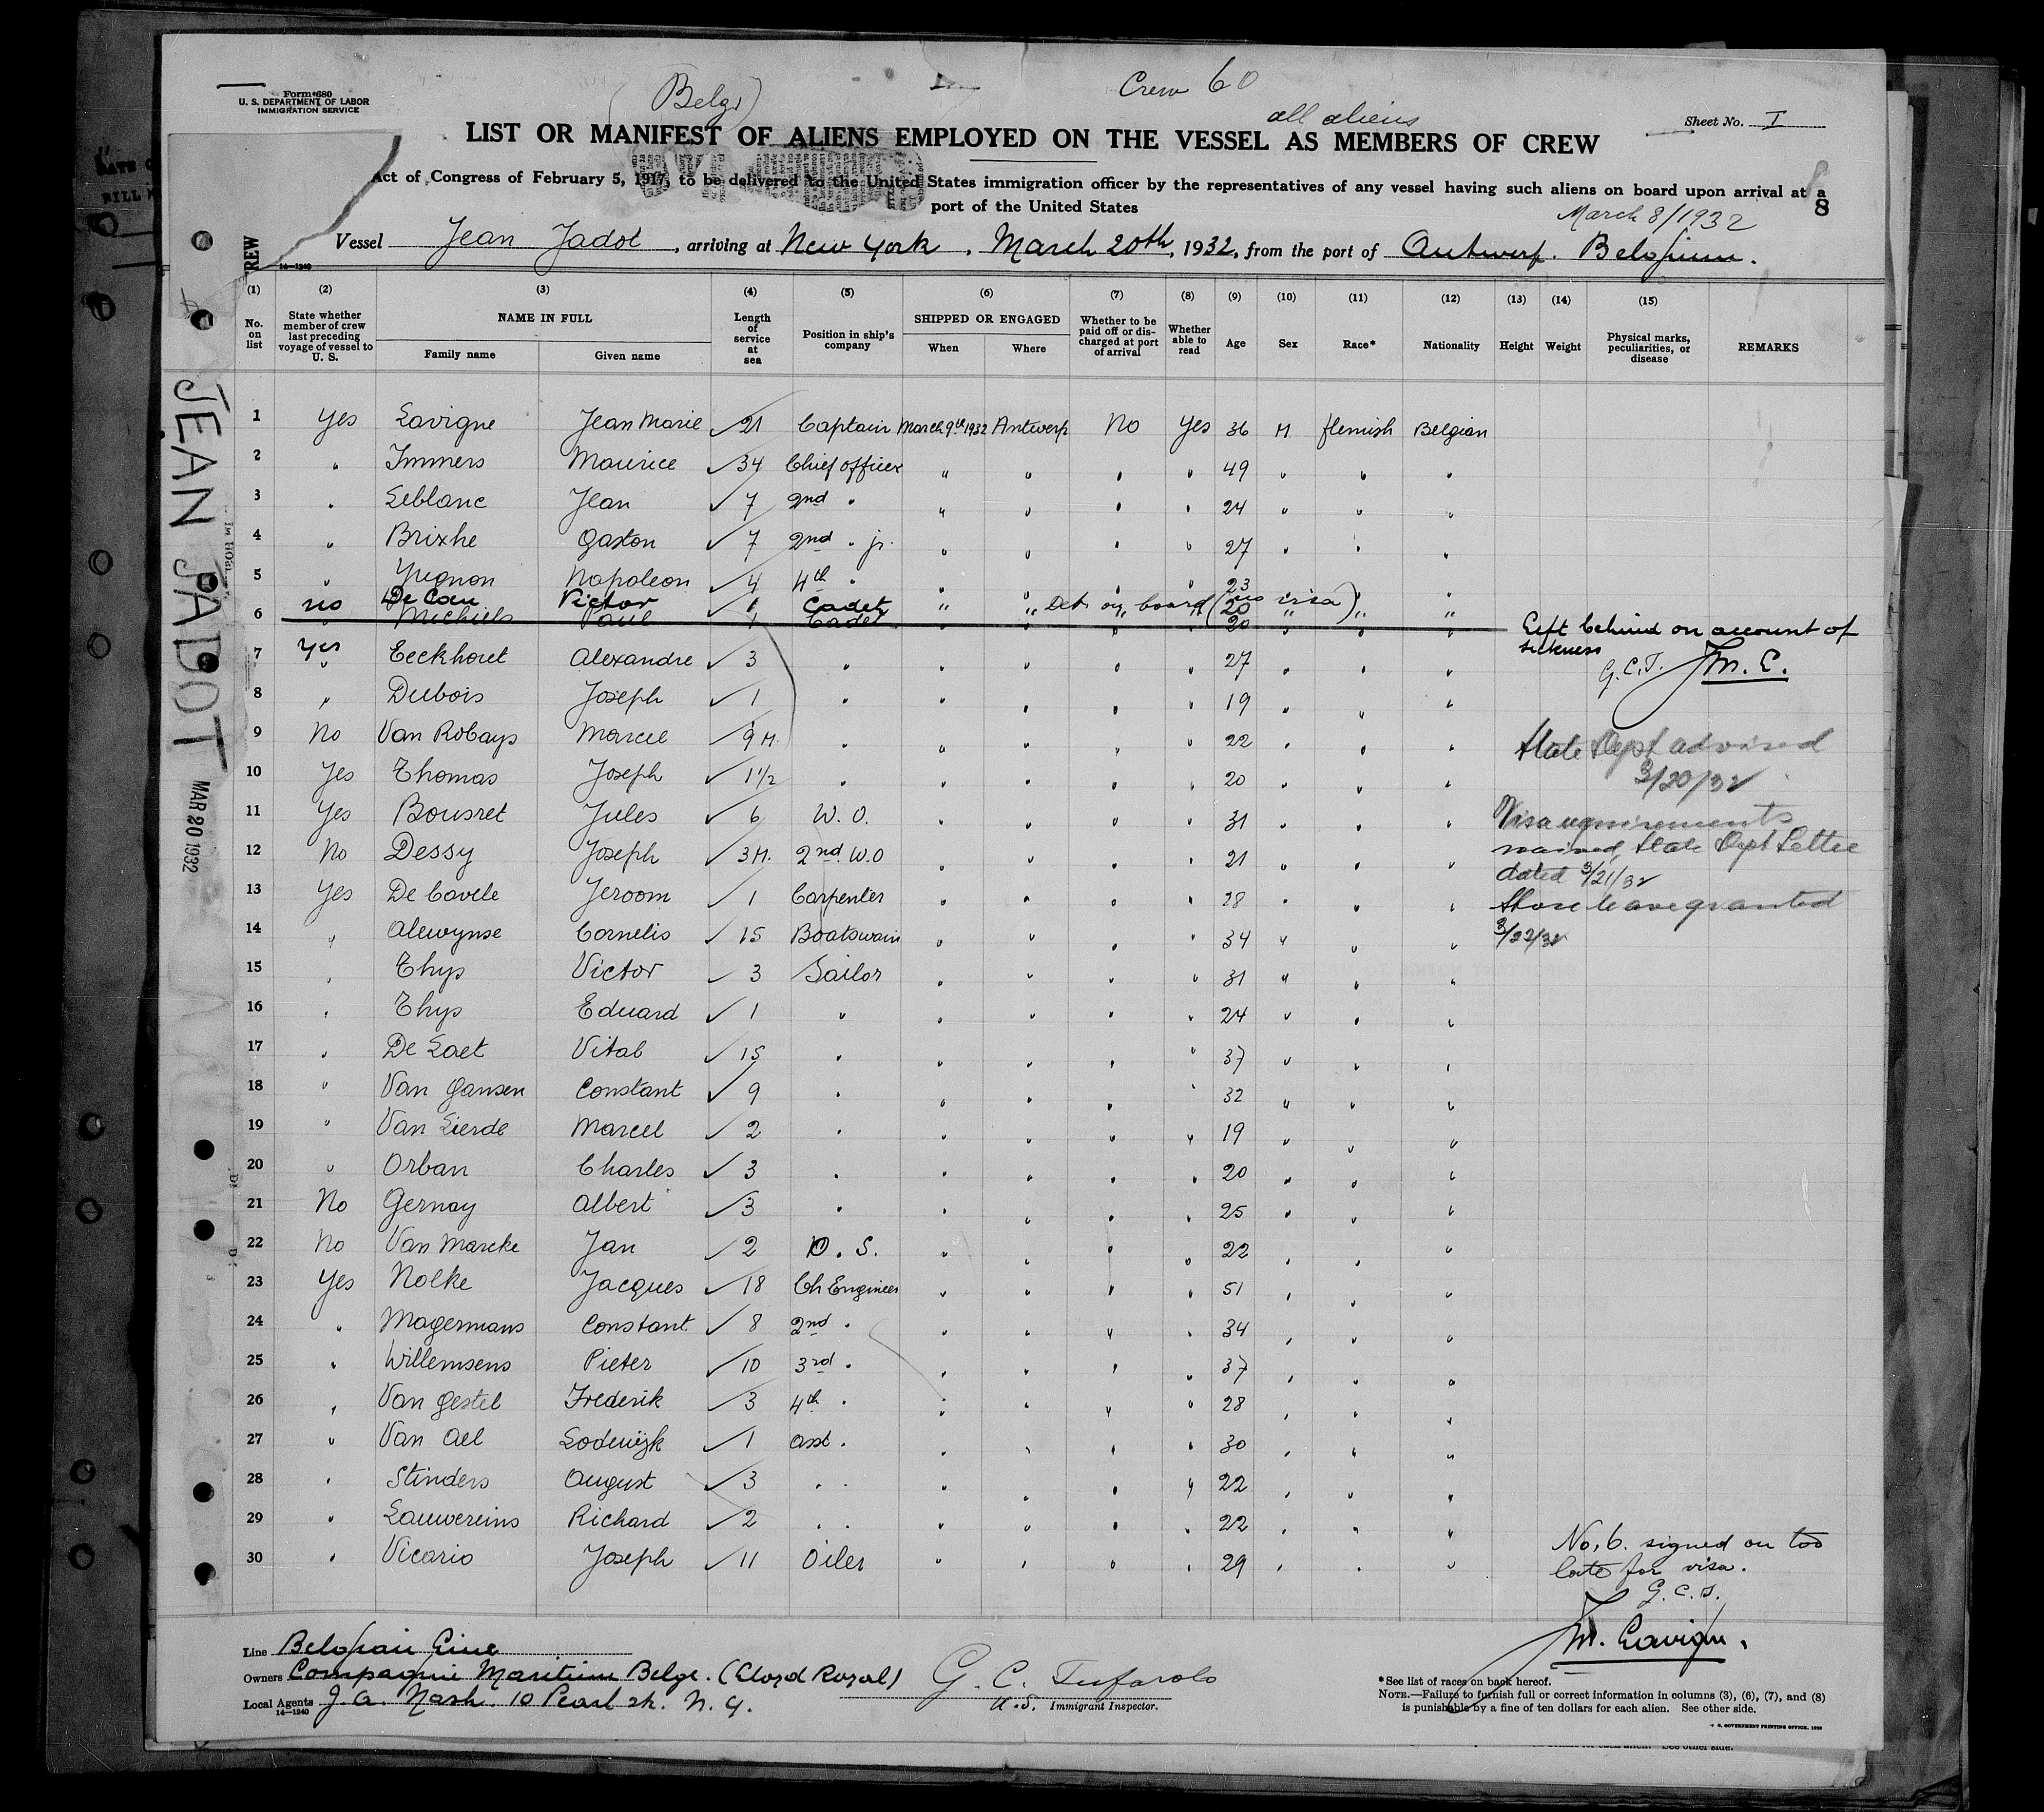 Form 680
U. S. DEPARTMENT OF LABOR
IMMIGRATION SERVICE
(Belg)
Crew 60
all aliens
Sheet No. I
LIST OR MANIFEST OF ALIENS EMPLOYED ON THE VESSEL AS MEMBERS OF CREW
Act of Congress of February 5, 1917, to be delivered to the United States immigration officer by the representatives of any vessel having such aliens on board upon arrival at a
port of the United States
8
March 8/1932
Vessel Jean Jadot, arriving at New York, March 20th, 1932, from the port of Antwerp. Belgium.
14—1240
(1) (2) (3) (4) (5) (6) (7) (8) (9) (10) (11) (12) (13) (14) (15)
No. on list State whether member of crew last preceding voyage of vessel to U. S. NAME IN FULL Family name Given name Length of service at sea Position in ship's company SHIPPED OR ENGAGED When Where Whether to be paid off or discharged at port of arrival Whether able to read Age Sex Race* Nationality Height Weight Physical marks, peculiarities, or disease REMARKS
1 Yes Lavigne Jean Marie 21 Captain March 9th 1932 Antwerp No Yes 36 M. flemish Belgian
2 " Immers Maurice 34 Chief officer " " " " 49 " " "
3 " Leblanc Jean 7 2nd " " " " " 24 " " "
4 " Brixhe Gaston 7 2nd " jr. " " " " 27 " " "
5 " Yugnon Napoleon 4 4th " " " " " 23 " " "
no De Cau Victor 1 Cadet " " Det. on board (no visa) " 20 " " "
6 " Michiels Paul 1 Cadet " " " " 20 " " " Left behind on account of sickness
G.C.T. J.M.C.
7 Yes Eeckhout Alexandre 3 " " " " " 27 " " "
8 " Dubois Joseph 1 " " " " " 19 " " "
9 No Van Robays Marcel 9 M. " " " " " 22 " " " State Dept advised
3/20/32
10 Yes Thomas Joseph 1 1/2 " " " " " 20 " " "
11 Yes Bousret Jules 6 W. O. " " " " 31 " " " Visa requirements
12 No Dessy Joseph 3 M. 2nd W.O " " " " 21 " " " waived, State Dept Letter
dated 3/21/32
13 Yes De Cavele Jeroom 1 Carpenter " " " " 28 " " " Shore leave granted
14 " Alewynse Cornelis 15 Boatswain " " " " 34 " " " 3/22/32
15 " Thys Victor 3 Sailor " " " " 31 " " "
16 " Thys Eduard 1 " " " " " 24 " " "
17 " De Laet Vital 15 " " " " " 37 " " "
18 " Van Gansen Constant 9 " " " " " 32 " " "
19 " Van Lierde Marcel 2 " " " " " 19 " " "
20 " Orban Charles 3 " " " " " 20 " " "
21 No Gernay Albert 3 " " " " " 25 " " "
22 No Van Marcke Jan 2 O. S. " " " " 22 " " "
23 Yes Nolke Jacques 18 Ch Engineer " " " " 51 " " "
24 " Magermans Constant 8 2nd " " " " " 34 " " "
25 " Willemsens Pieter 10 3rd " " " " " 37 " " "
26 " Van Gestel Frederik 3 4th " " " " " 28 " " "
27 " Van Ael Lodewijk 1 asst. " " " " 30 " " "
28 " Stinders August 3 " " " " " " 22 " " "
29 " Lauwereins Richard 2 " " " " " " 22 " " "
30 " Vicario Joseph 11 Oiler " " " " 29 " " "
No. 6. signed on too
late for visa.
G. C. T.
M. Lavigne.
Line Belgian Line
Owners Compagnie Maritime Belge. (Lloyd Royal)
Local Agents J. A. Nash. 10 Pearl st. N. Y.
14—1240
G. C. Tufarolo
U.S. Immigrant Inspector.
*See list of races on back hereof.
NOTE.—Failure to furnish full or correct information in columns (3), (6), (7), and (8)
is punishable by a fine of ten dollars for each alien. See other side.
JEAN JADOT
MAR 20 1932